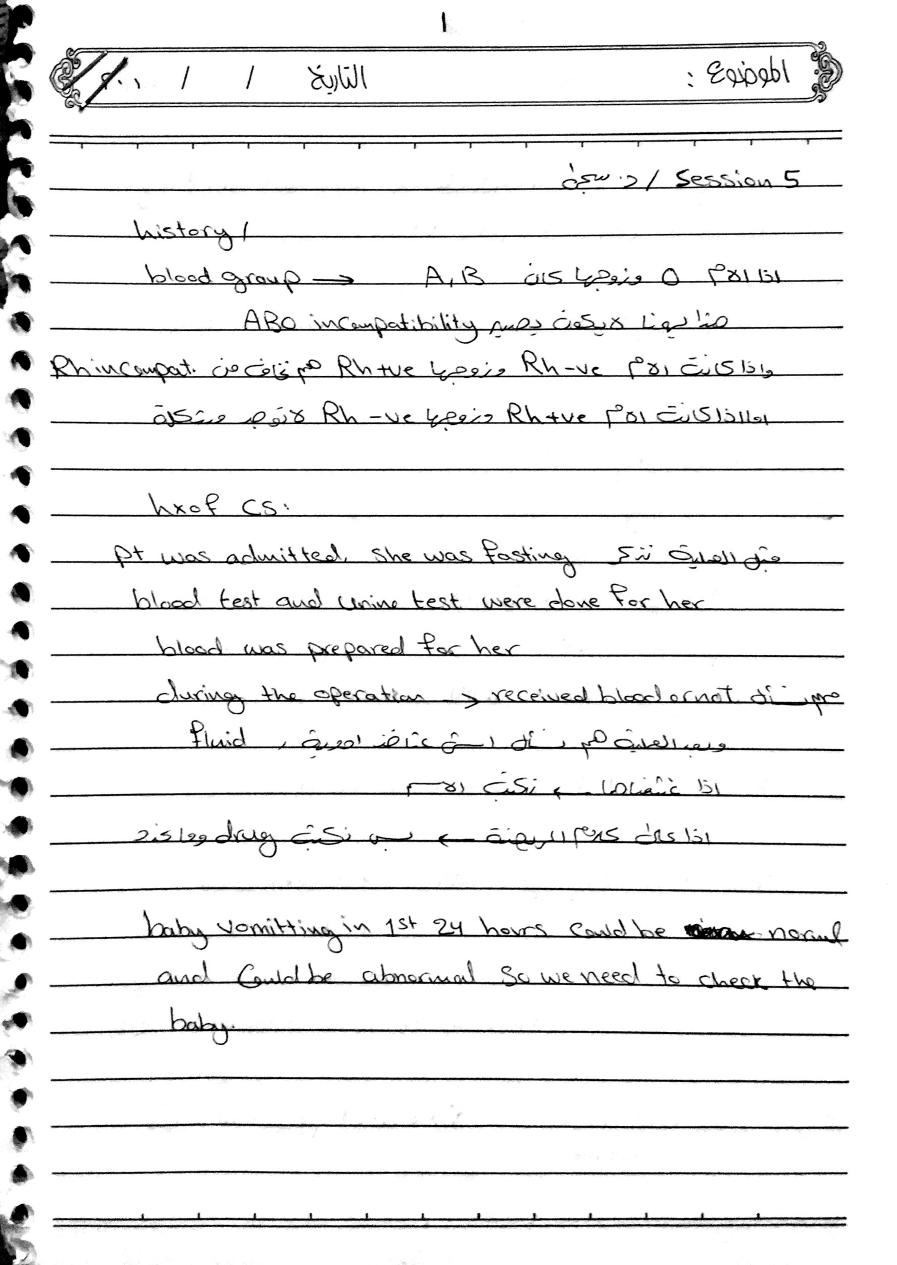 1
الموضوع : التاريخ / / ٢٠١
Session 5 / د. سجى
history /
blood group → اذا الام O وزوجها كان A, B
هنا يكون يصير ABO incompatibility
واذا كانت الام Rh -ve وزوجها Rh +ve هم نخاف من Rh incompat.
اما اذا كانت الام Rh +ve وزوجها Rh -ve لا توجد مشكلة
hx of CS:
pt was admitted, she was fasting قبل العملية نذكر
blood test and urine test were done for her
blood was prepared for her
during the operation → received blood or not هم نسأل
وبعد العملية هم نسأل ادوية , fluid
اذا ← نكتب الاسم
اذا كلام المريضة ← بس نكتب drug
baby vomitting in 1st 24 hours could be normal
and Could be abnormal So we need to check the
baby.